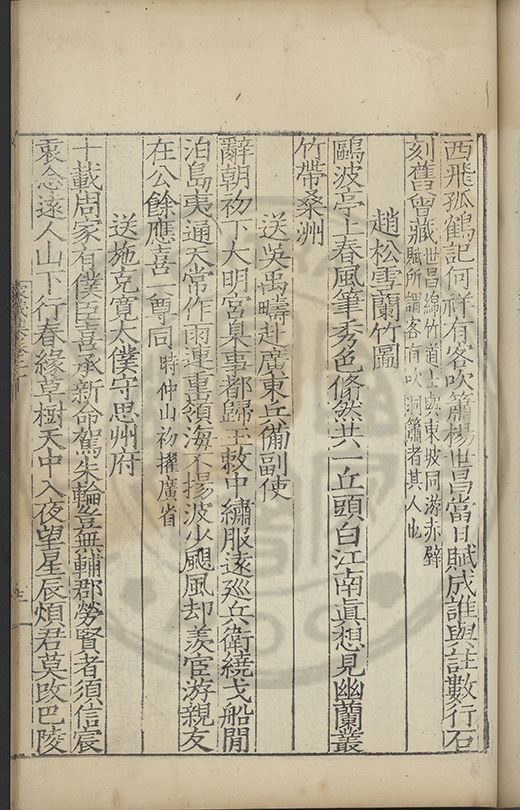 西飛孤鶴記何祥有客吹簫楊世昌當日賦成誰與註數行石
刻舊曾藏世昌綿竹道士與東坡同游赤壁
賦所謂客有吹洞簫者其人也
趙松雪蘭竹圖
鷗波亭上春風筆秀色翛然共一丘頭白江南眞想見幽蘭叢
竹帶桑洲
送吳禹疇赴廣東兵備副使
辭朝初下大明宮臬事都歸王敕中繡服遠巡兵衛繞戈船閒
泊島夷通天常作雨連重嶺海不揚波少颶風却羨官游親友
在公餘應喜一尊同時仲山初擢廣省
送施克寬太僕守思州府
十載周家有僕臣喜承新命駕朱輪豈無輔郡勞賢者須信宸
衷念遠人山下行春緣草樹天中入夜望星辰煩君莫改巴陵